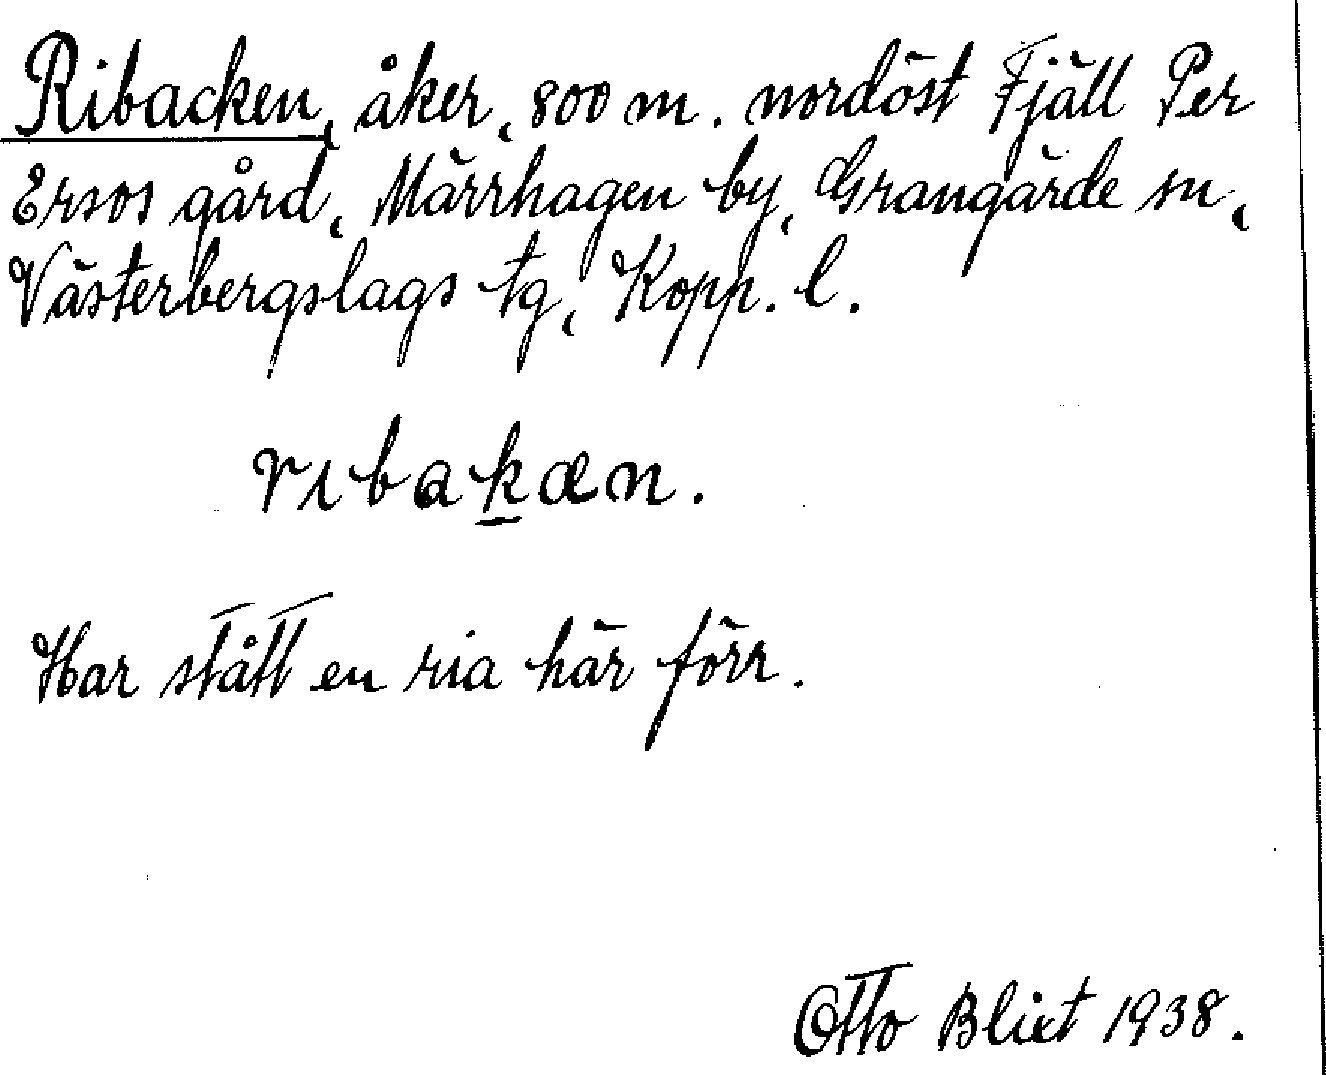 Ribacken, åker, 800 m. nordöst Fjäll Per
Ersos gård, Märrhagen by, Grangärde sn,
Västerbergslags tg, Kopp. l.
rıbakæn.
Har stått en ria här förr.
Otto Blixt 1938.